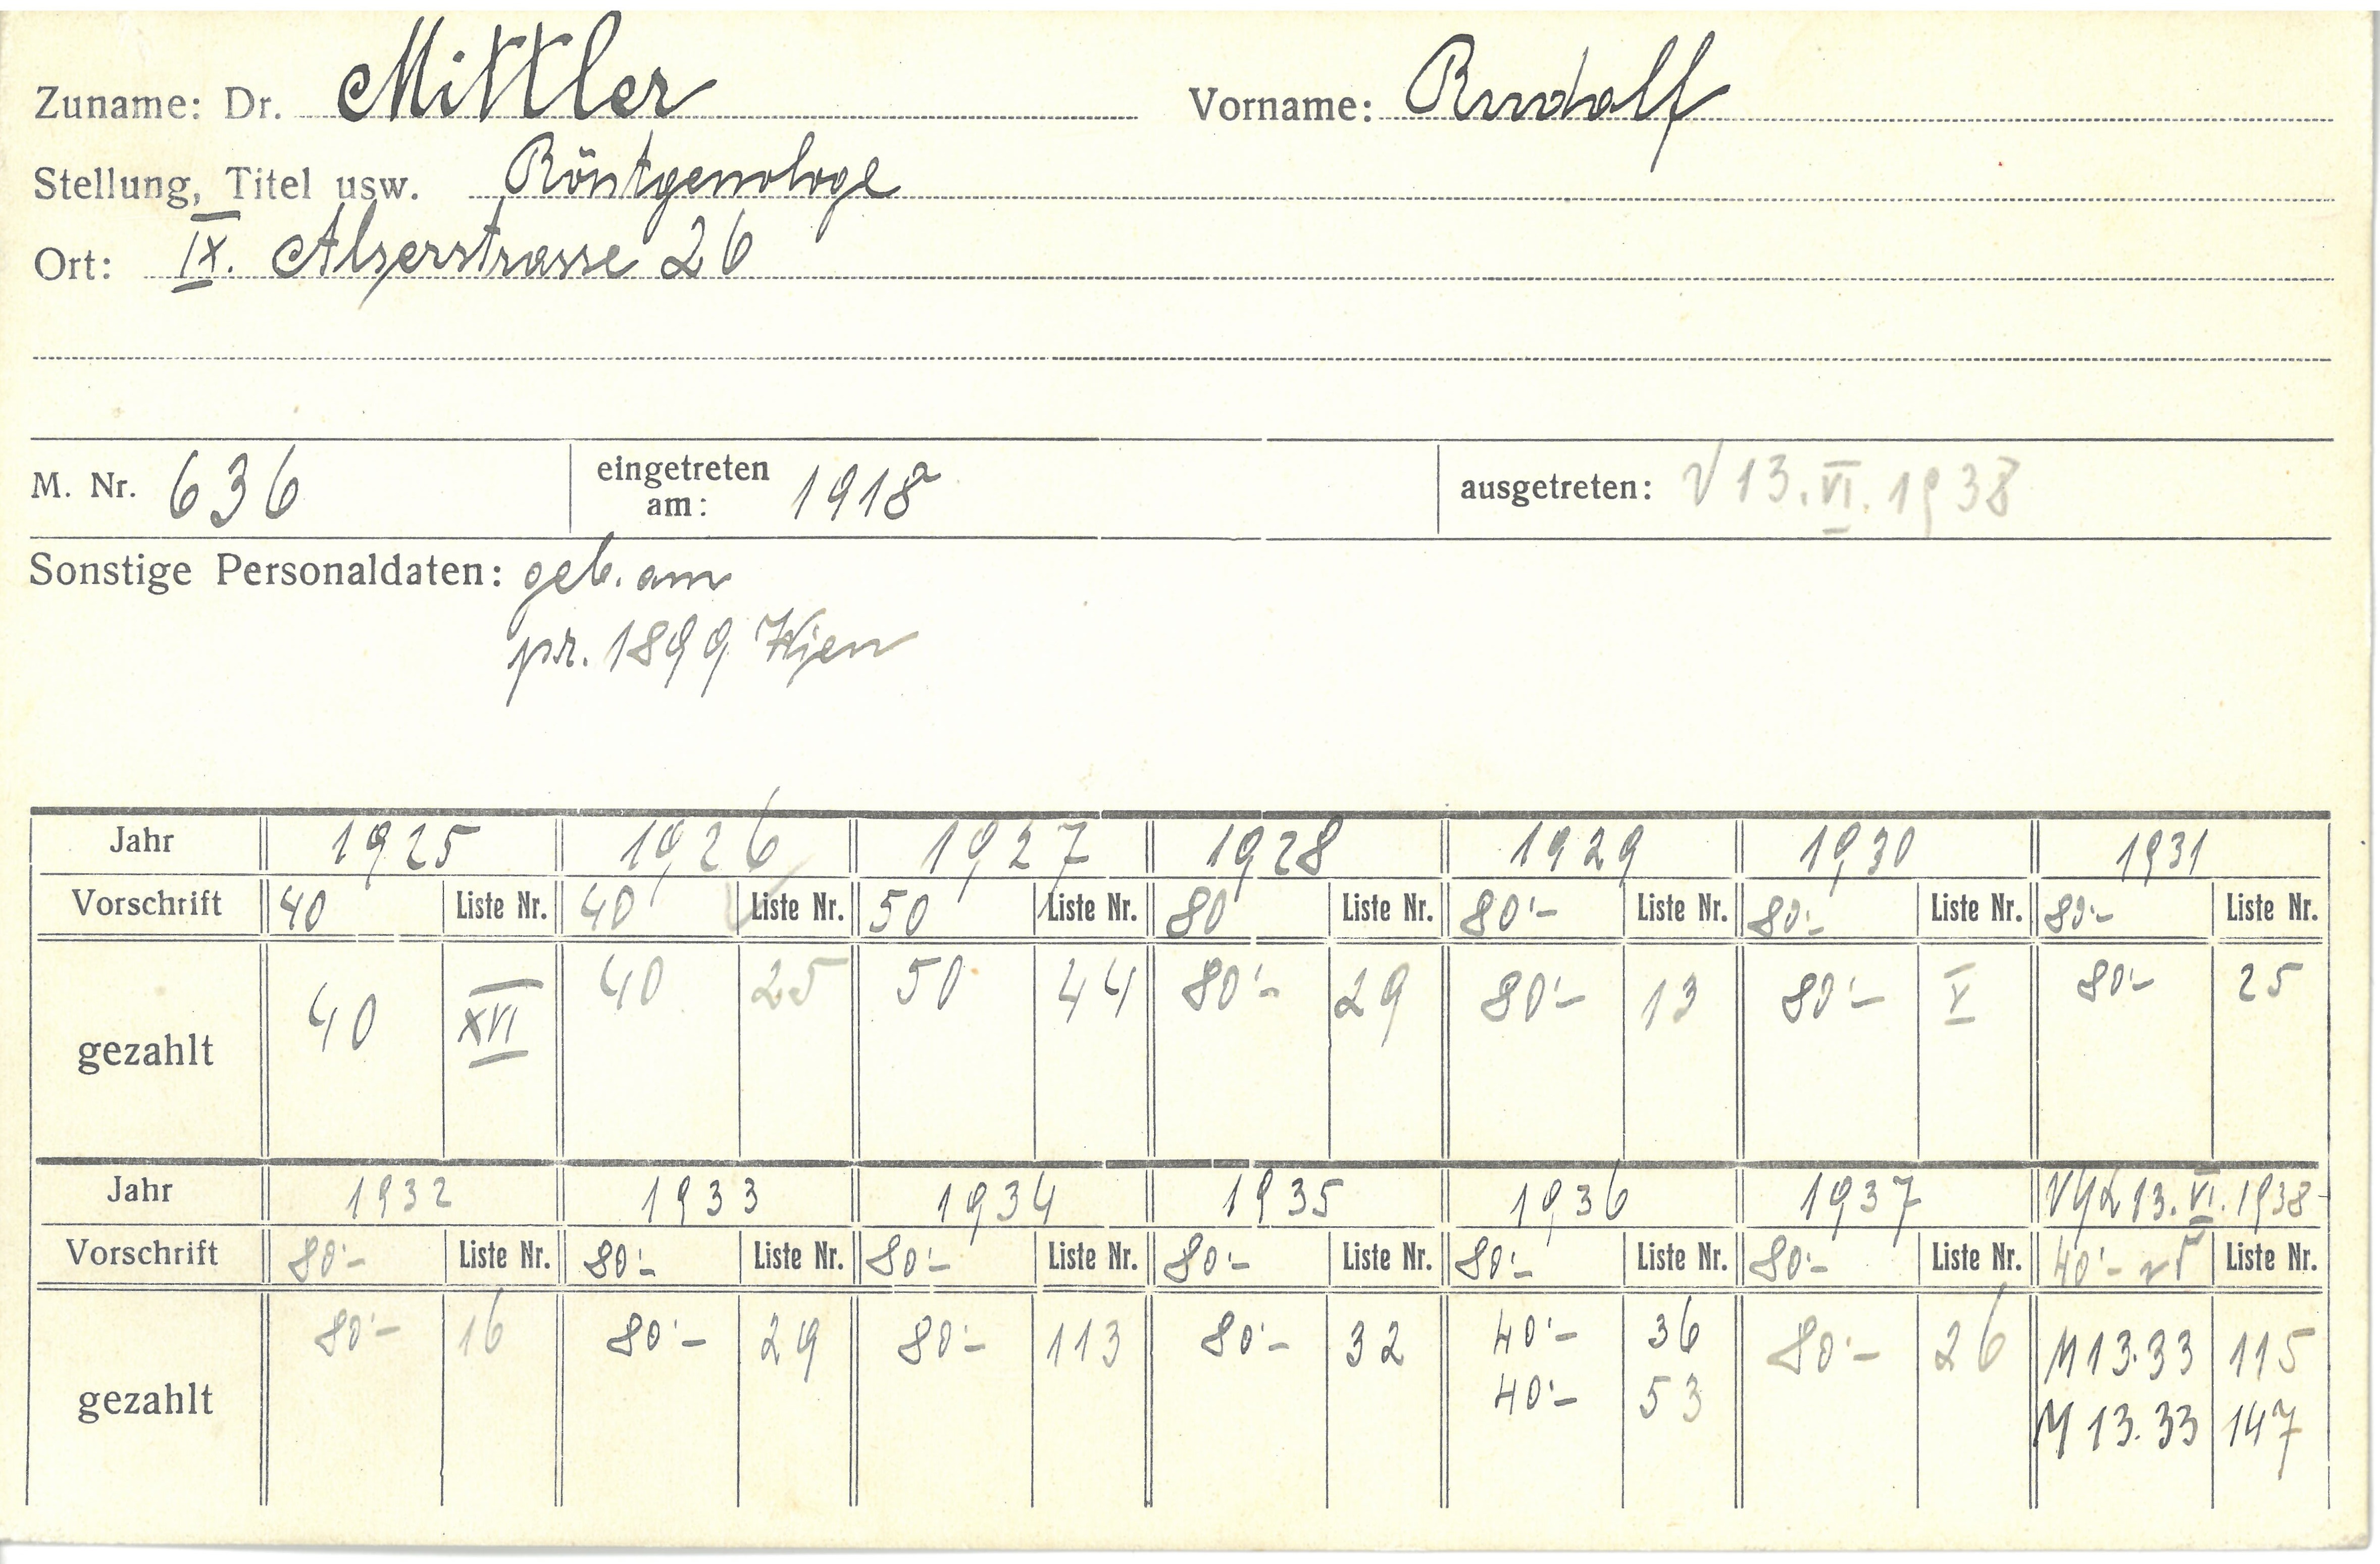 Zuname: Dr. Mittler Vorname: Rudolf
Stellung, Titel usw. Röntgenologe
Ort: IX. Alserstrasse 26
M. Nr. 636 eingetreten am: 1918 ausgetreten: 13. VI. 1938
Sonstige Personaldaten: geb. am
pr. 1899 Wien
Jahr 1925 1926 1927 1928 1929 1930 1931
Vorschrift 40 Liste Nr. 40 Liste Nr. 50 Liste Nr. 80 Liste Nr. 80·- Liste Nr. 80·- Liste Nr. 80·- Liste Nr.
gezahlt 40 XVI 40 25 50 44 80·- 29 80·- 13 80·- V 80·- 25
Jahr 1932 1933 1934 1935 1936 1937 13. VI. 1938
Vorschrift 80·- Liste Nr. 80·- Liste Nr. 80·- Liste Nr. 80·- Liste Nr. 80·- Liste Nr. 80·- Liste Nr. 40·- Liste Nr.
gezahlt 80·- 16 80·- 29 80·- 113 80·- 32 40·- 36 80·- 26 M 13.33 115
40·- 53 M 13.33 147